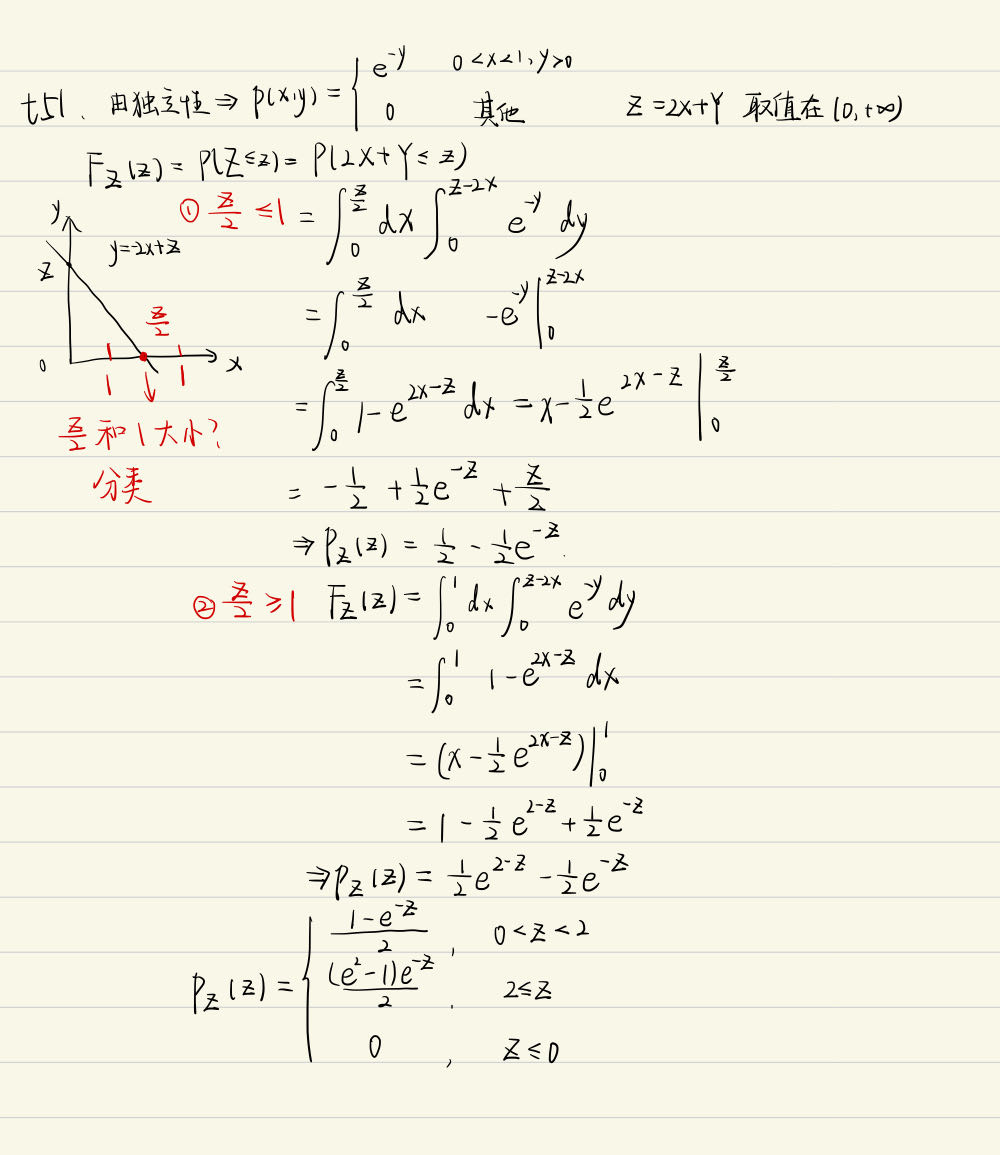 t51、由独立性 ⇒ p(x,y) = { e^{-y}  0<x<1, y>0
0  其他  Z=2X+Y 取值在 (0,+∞)
F_Z(z) = P(Z≤z) = P(2X+Y≤z)
① z/2 ≤1 = ∫_0^{z/2} dx ∫_0^{z-2x} e^{-y} dy
y
y=-2x+z
z
= ∫_0^{z/2} dx  -e^{-y} |_0^{z-2x}
z/2
0  x
1  1
= ∫_0^{z/2} 1-e^{2x-z} dx = x-1/2 e^{2x-z} |_0^{z/2}
z/2 和 1 大小?
分类
= -1/2 + 1/2 e^{-z} + z/2
⇒ P_Z(z) = 1/2 - 1/2 e^{-z}.
② z/2 ≥1  F_Z(z) = ∫_0^1 dx ∫_0^{z-2x} e^{-y} dy
= ∫_0^1 1-e^{2x-z} dx
= (x-1/2 e^{2x-z}) |_0^1
= 1 - 1/2 e^{2-z} + 1/2 e^{-z}
⇒ p_Z(z) = 1/2 e^{2-z} - 1/2 e^{-z}
p_Z(z) = { (1-e^{-z})/2 ,  0<z<2
(e^2-1)e^{-z}/2 .  2≤z
0 ,  z≤0